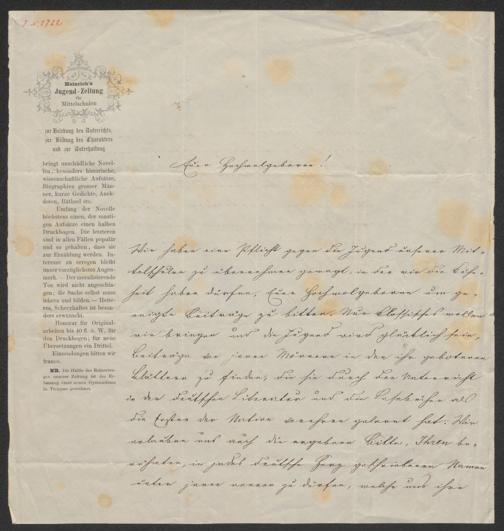 Heinrich's
Jugend-Zeitung
für
Mittelschulen
zur Belebung des Unterrichts,
zur Bildung des Charakters
und zur Unterhaltung
bringt unschädliche Novel-
len, besonders historische,
wissenschaftliche Aufsätze,
Biographien grosser Män-
ner, kurze Gedichte, Anek-
doten, Räthsel etc.
Umfang der Novelle
höchstens einen, der sonsti-
gen Aufsätze einen halben
Druckbogen. Die letzteren
sind in allen Fällen populär
und so gehalten, dass sie
zur Erzählung werden. In-
teresse zu erregen bleibt
unser vorzüglichstes Augen-
merk. — Der moralisirende
Ton wird nicht angeschla-
gen; die Sache selbst muss
lehren und bilden. — Heite-
res, Scherzhaftes ist beson-
ders erwünscht.
Honorar für Original-
arbeiten bis 40 fl. ö. W. für
den Druckbogen; für neue
Übersetzungen ein Drittel.
Einsendungen bitten wir
franco.
NB. Die Hälfte des Reinertra-
ges unserer Zeitung ist der Er-
bauung eines neuen Gymnasiums
in Troppau gewidmet.
Euer Hochwolgeboren!
Wir haben eine Pflicht gegen die Jugend unserer Mit-
telschulen zu übernehmen gewagt, in der wir die
heit haben dürfen, Euer Hochwolgeboren um ge-
neigte Beiträge zu bitten. Nur Classisches wollen
wir bringen und die Jugend wird glücklich sein,
Beiträge von jenen Männern in den ihr gebotenen
Blättern zu finden, die sie durch den Unterricht
in der deutschen Literatur und die Lesebücher als
die Ersten der Nation verehren gelernt hat. Wir
erlauben uns auch die ergebene Bitte, Ihren be-
rühmten, in jedes deutsche Herz geschriebenen Namen
unter jenen nennen zu dürfen, welche uns ihre